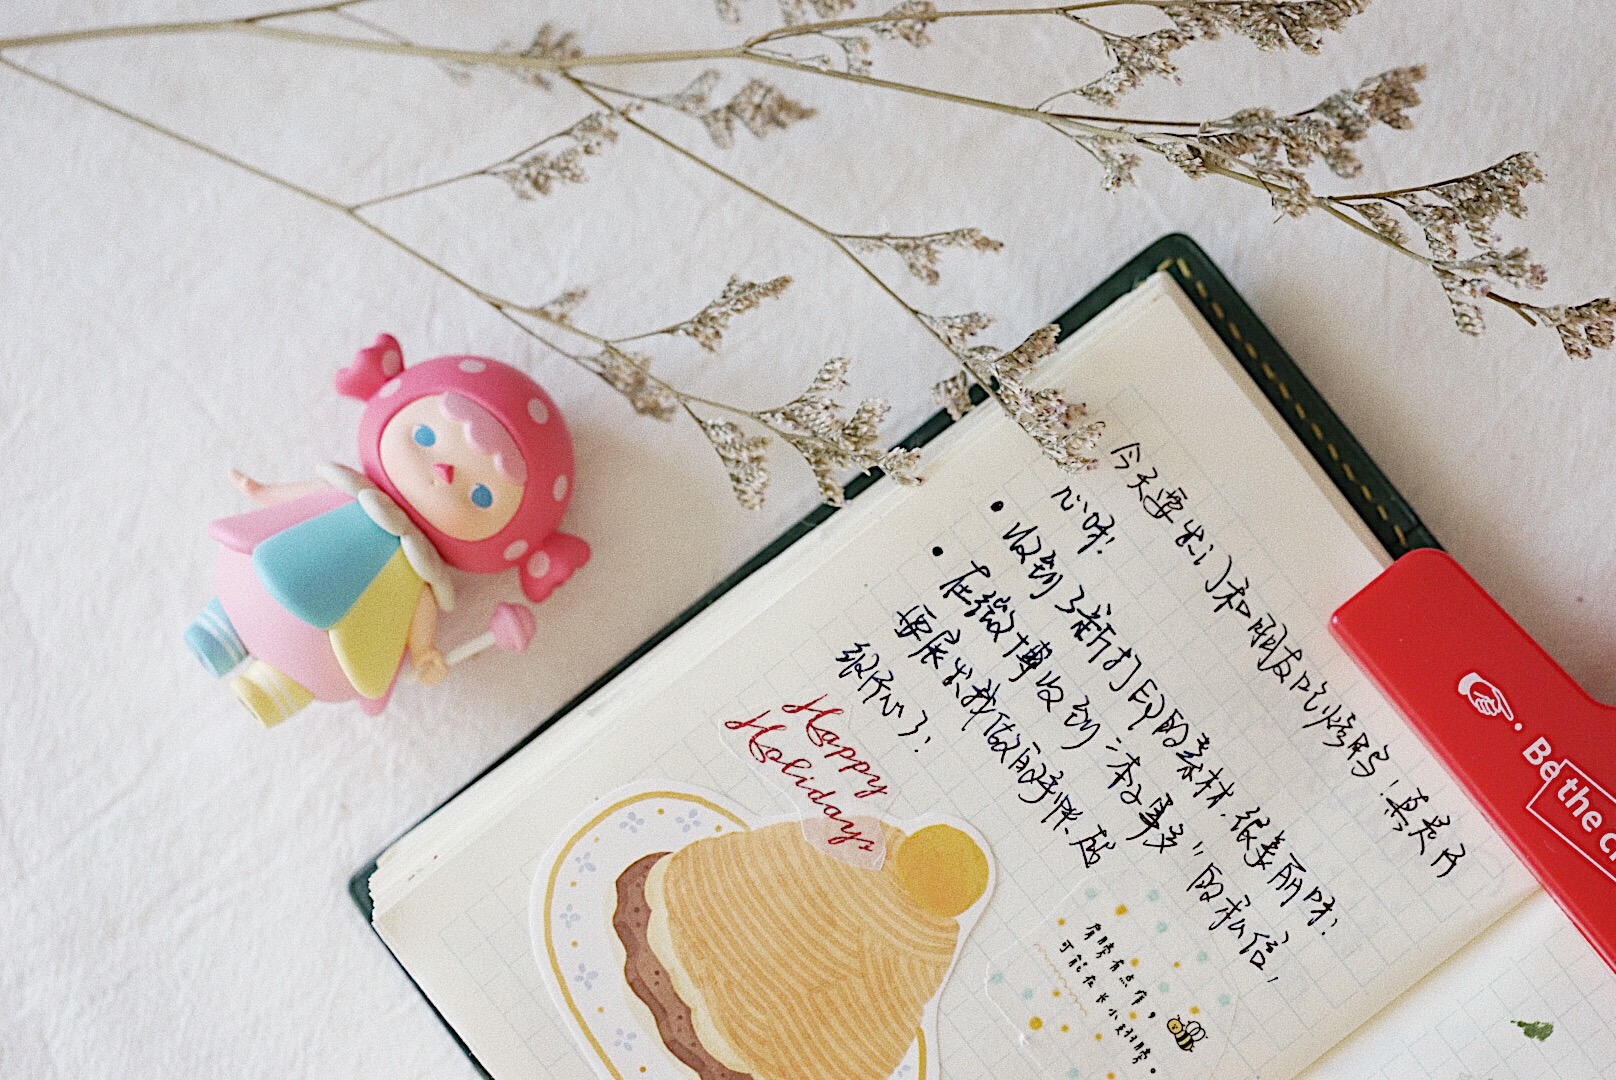 今天要出门和朋友吃烧鸟！真是开
心呀！
• 收到了新打印的素材，很美丽呀！
• 在微博收到“本子事多”的私信，
要展出我做的手帐，感
很开心了！
Happy
Holidays
肩膀有点痒，
可能在长小翅膀。
有·Be
the c